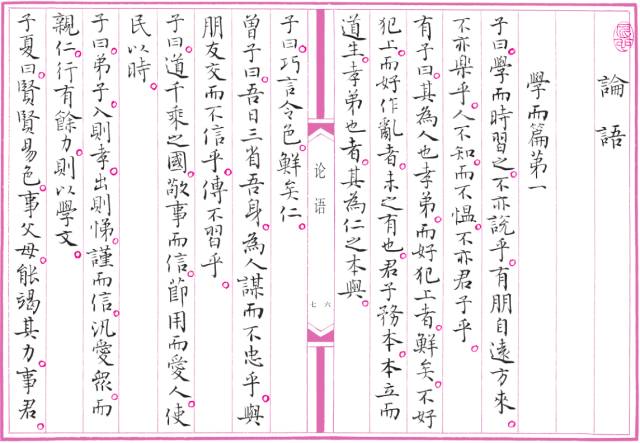 論語
學而篇第一
子曰學而時習之不亦說乎有朋自遠方來
不亦樂乎人不知而不愠不亦君子乎
有子曰其為人也孝弟而好犯上者鮮矣不好
犯上而好作亂者未之有也君子務本本立而
道生孝弟也者其為仁之本與
论语
六七
子曰巧言令色鮮矣仁
曾子曰吾日三省吾身為人謀而不忠乎與
朋友交而不信乎傳不習乎
子曰道千乘之國敬事而信節用而愛人使
民以時
子曰弟子入則孝出則悌謹而信汎愛眾而
親仁行有餘力則以學文
子夏曰賢賢易色事父母能竭其力事君